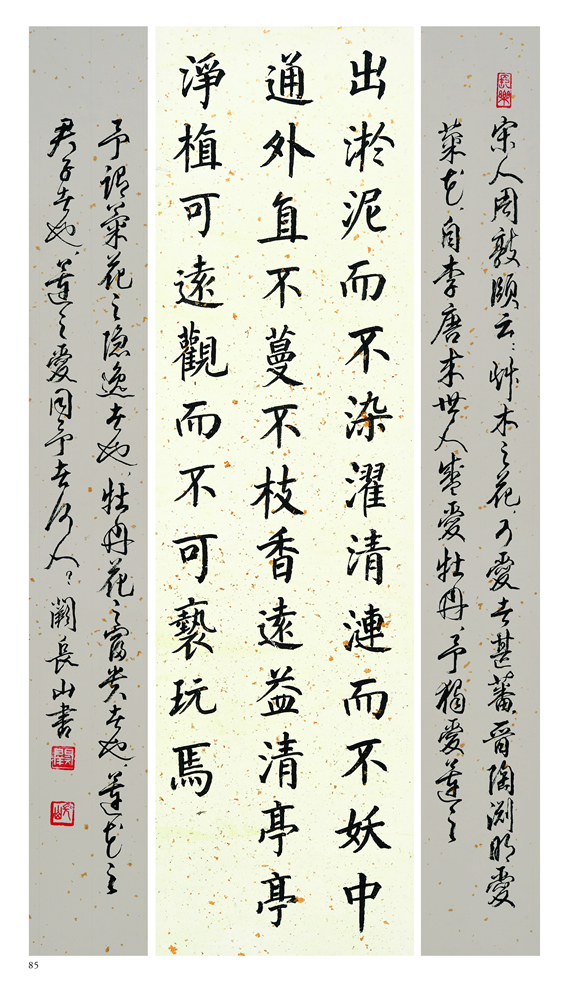 宋人周敦頤云：艸木之花，可愛者甚蕃晉陶淵明愛
菊花，自李唐來世人盛愛牡丹，予獨愛蓮之
出淤泥而不染濯清漣而不妖中
通外直不蔓不枝香遠益清亭亭
淨植可遠觀而不可褻玩焉
予謂菊花之隱逸者也，牡丹花之富貴者也，蓮花之
君子者也，蓮之愛同予者何人？闞長山書
85